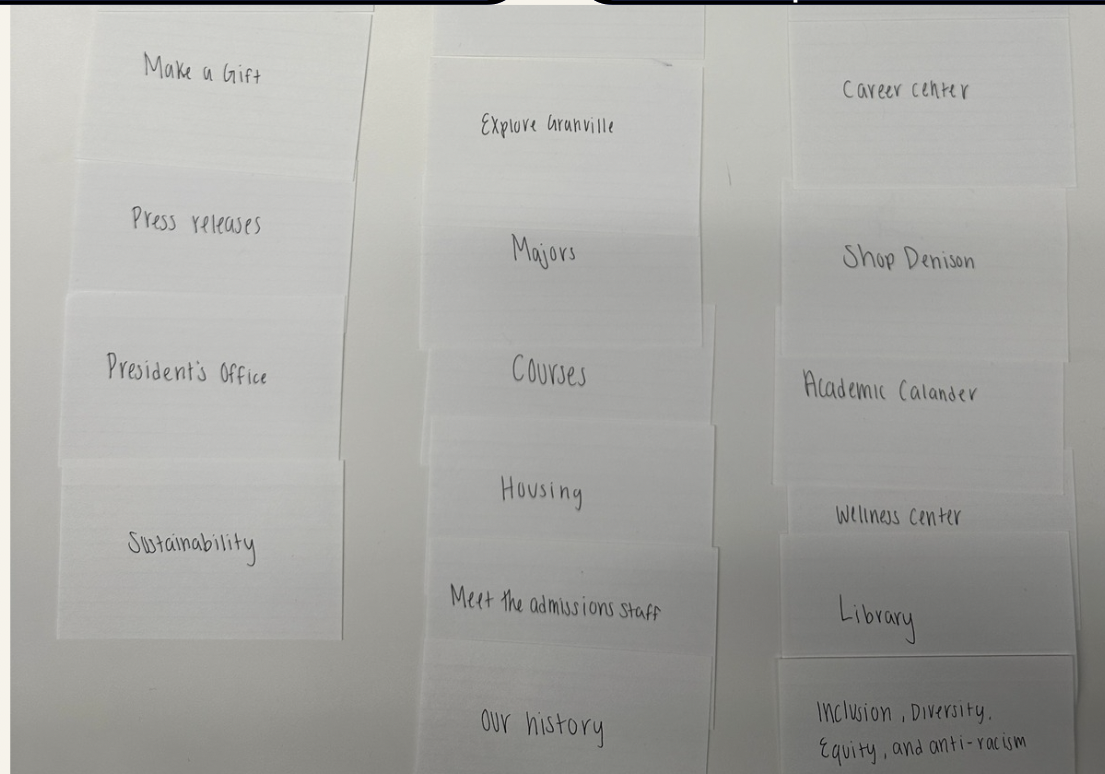 Make a Gift
Press releases
President's Office
Sustainability
Explore Granville
Majors
Courses
Housing
Meet the admissions staff
our history
Career center
Shop Denison
Academic Calander
Wellness center
Library
Inclusion, Diversity,
Equity, and anti-racism